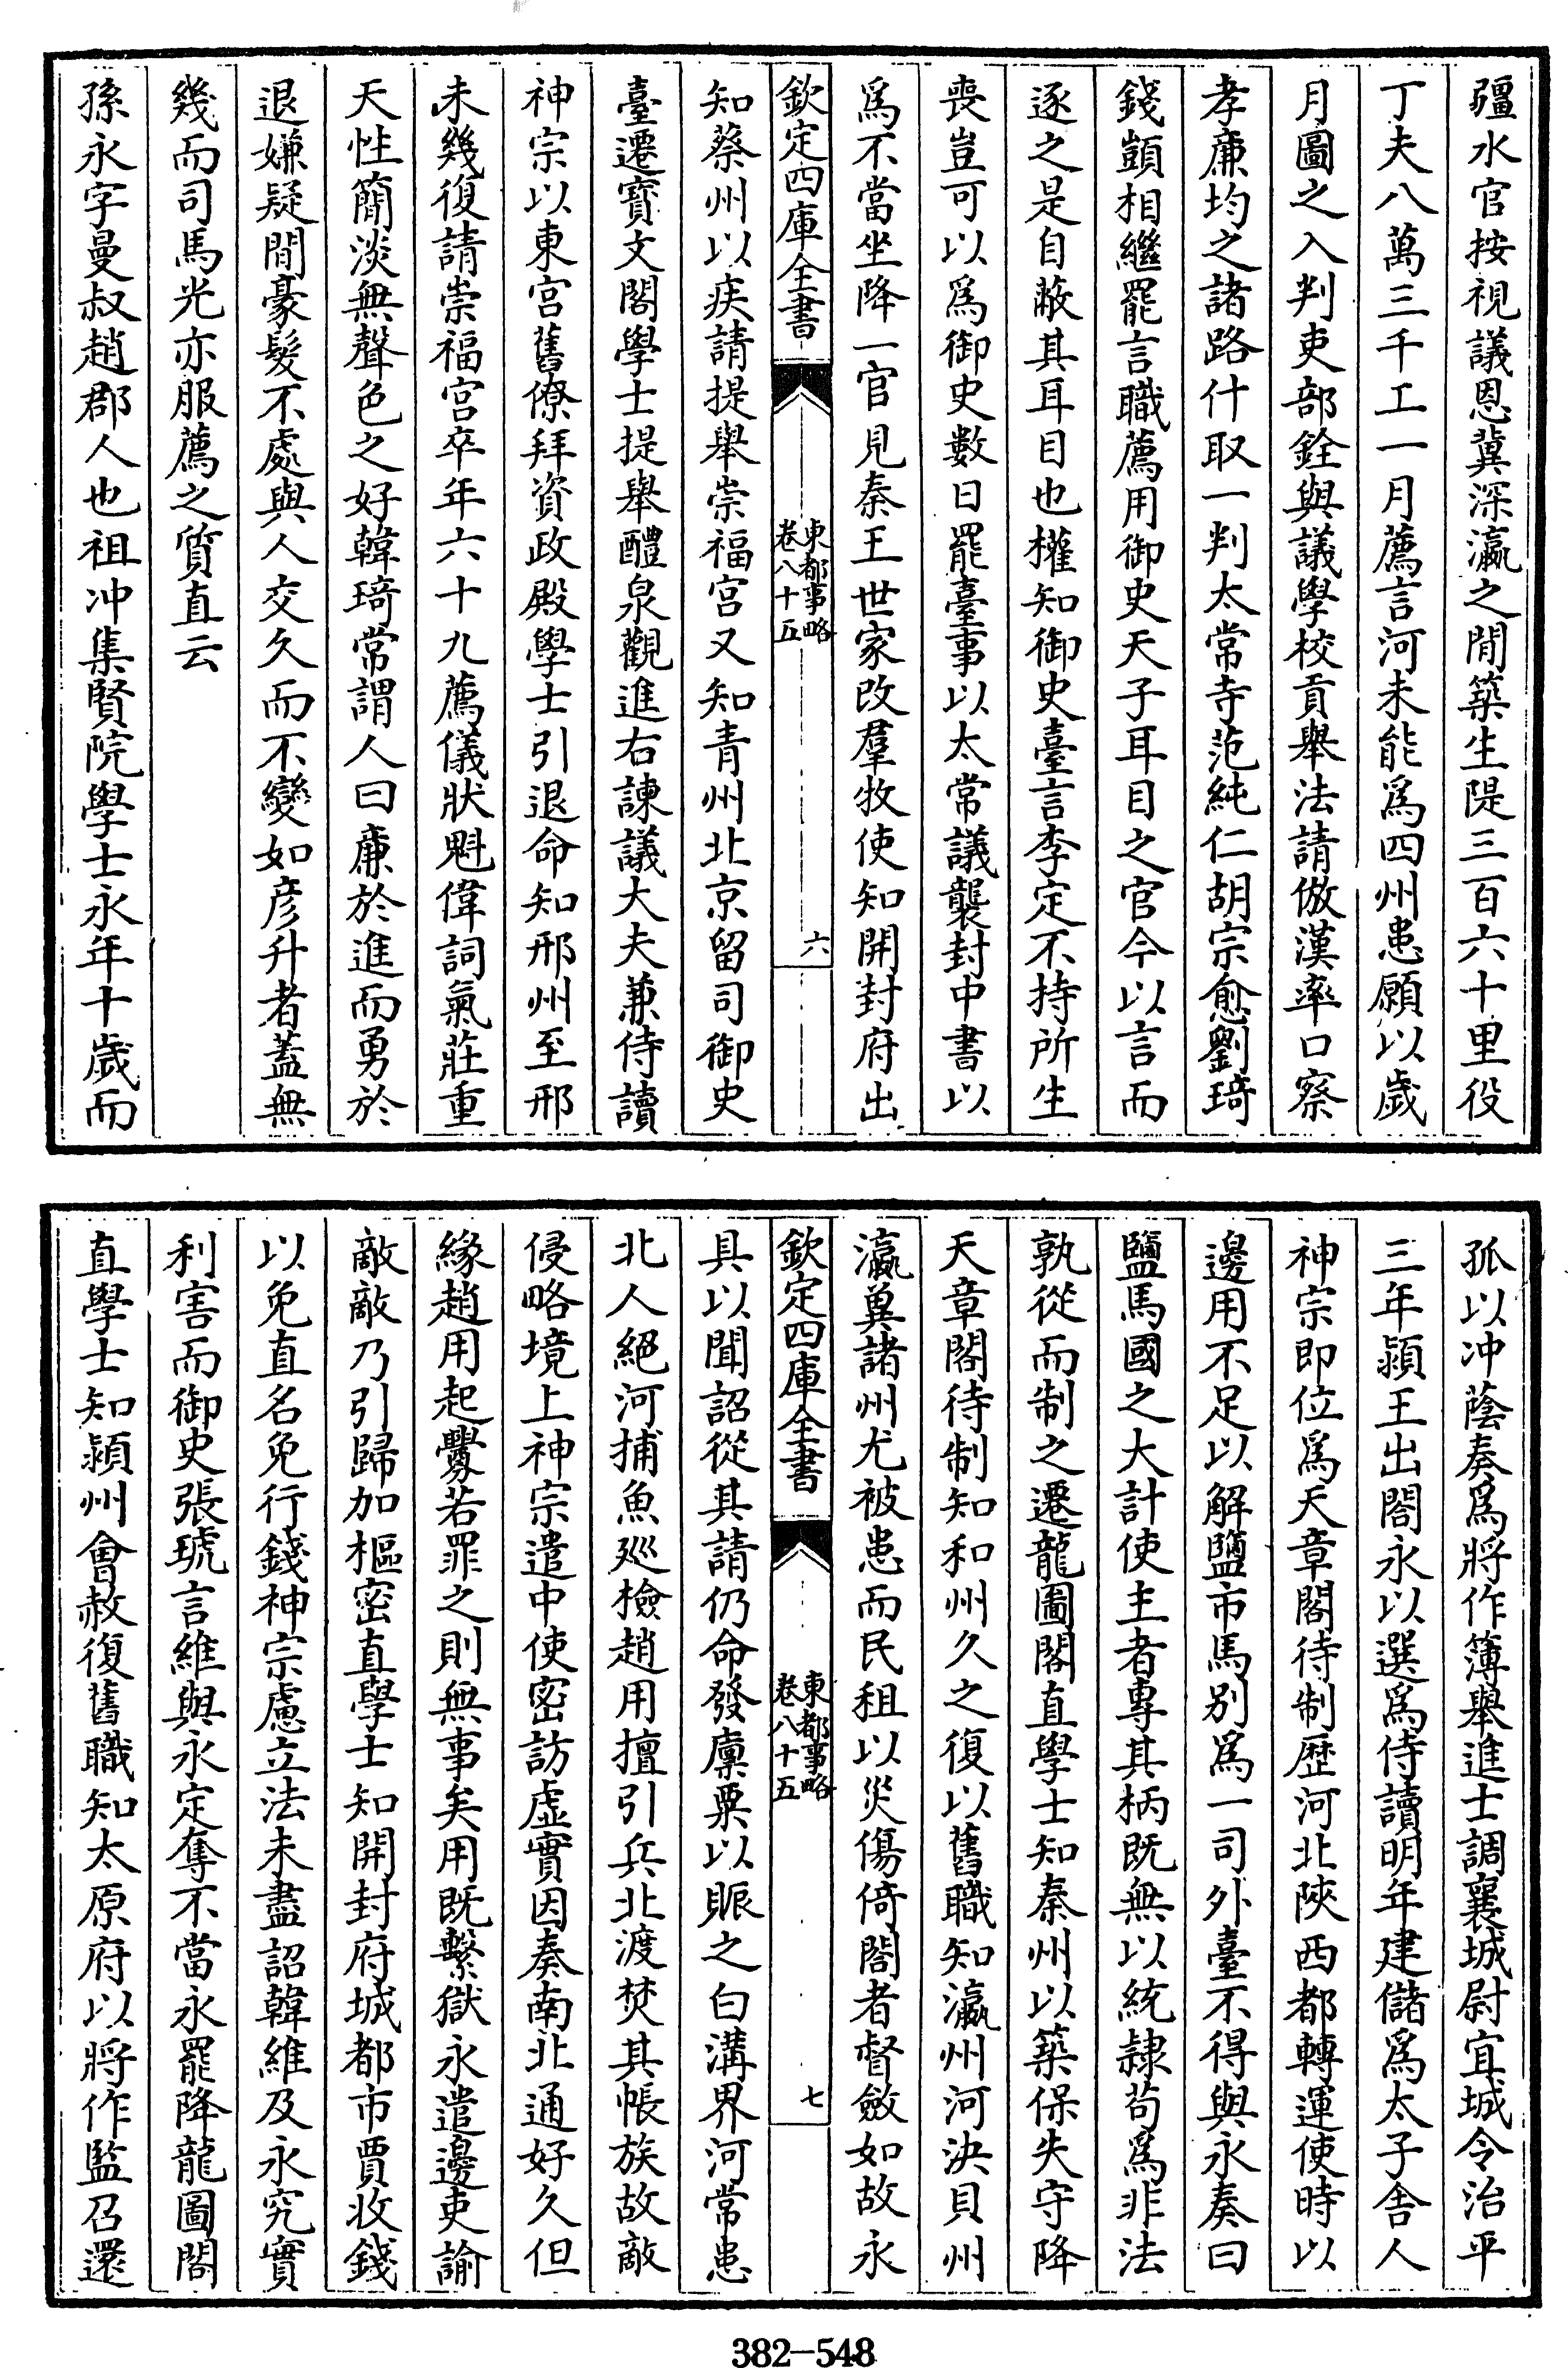 疆水官按視議恩冀深瀛之間築生隄三百六十里役
丁夫八萬三千工一月薦言河未能爲四州患願以歲
月圖之入判吏部銓與議學校貢舉法請倣漢率口察
孝廉均之諸路什取一判太常寺范純仁胡宗愈劉琦
錢顗相繼罷言職薦用御史天子耳目之官今以言而
逐之是自蔽其耳目也權知御史臺言李定不持所生
喪豈可以爲御史數日罷臺事以太常議襲封中書以
爲不當坐降一官見秦王世家改羣牧使知開封府出
欽定四庫全書
東都事略
卷八十五
六
知蔡州以疾請提舉崇福宮又知青州北京留司御史
臺遷寳文閣學士提舉醴泉觀進右諫議大夫兼侍讀
神宗以東宮舊僚拜資政殿學士引退命知邢州至邢
未幾復請崇福宮卒年六十九薦儀狀魁偉詞氣莊重
天性簡淡無聲色之好韓琦常謂人曰廉於進而勇於
退嫌疑間豪髮不處與人交久而不變如彦升者蓋無
幾而司馬光亦服薦之質直云
孫永字曼叔趙郡人也祖冲集賢院學士永年十歲而
孤以冲蔭奏爲將作簿舉進士調襄城尉宜城令治平
三年潁王出閣永以選爲侍讀明年建儲爲太子舍人
神宗即位爲天章閣待制歴河北陜西都轉運使時以
邊用不足以解鹽市馬别爲一司外臺不得與永奏曰
鹽馬國之大計使主者專其柄既無以統隷茍爲非法
孰從而制之遷龍圖閣直學士知秦州以築保失守降
天章閣待制知和州久之復以舊職知瀛州河決貝州
瀛冀諸州尤被患而民租以災傷倚閣者督斂如故永
欽定四庫全書
東都事略
卷八十五
七
具以聞詔從其請仍命發廩粟以賑之白溝界河常患
北人絕河捕魚廵檢趙用擅引兵北渡焚其帳族故敵
侵略境上神宗遣中使密訪虛實因奏南北通好久但
緣趙用起釁若罪之則無事矣用既繫獄永遣邊吏諭
敵敵乃引歸加樞密直學士知開封府城都市賈收錢
以免直名免行錢神宗慮立法未盡詔韓維及永究實
利害而御史張琥言維與永定奪不當永罷降龍圖閣
直學士知潁州會赦復舊職知太原府以將作監召還
382—548